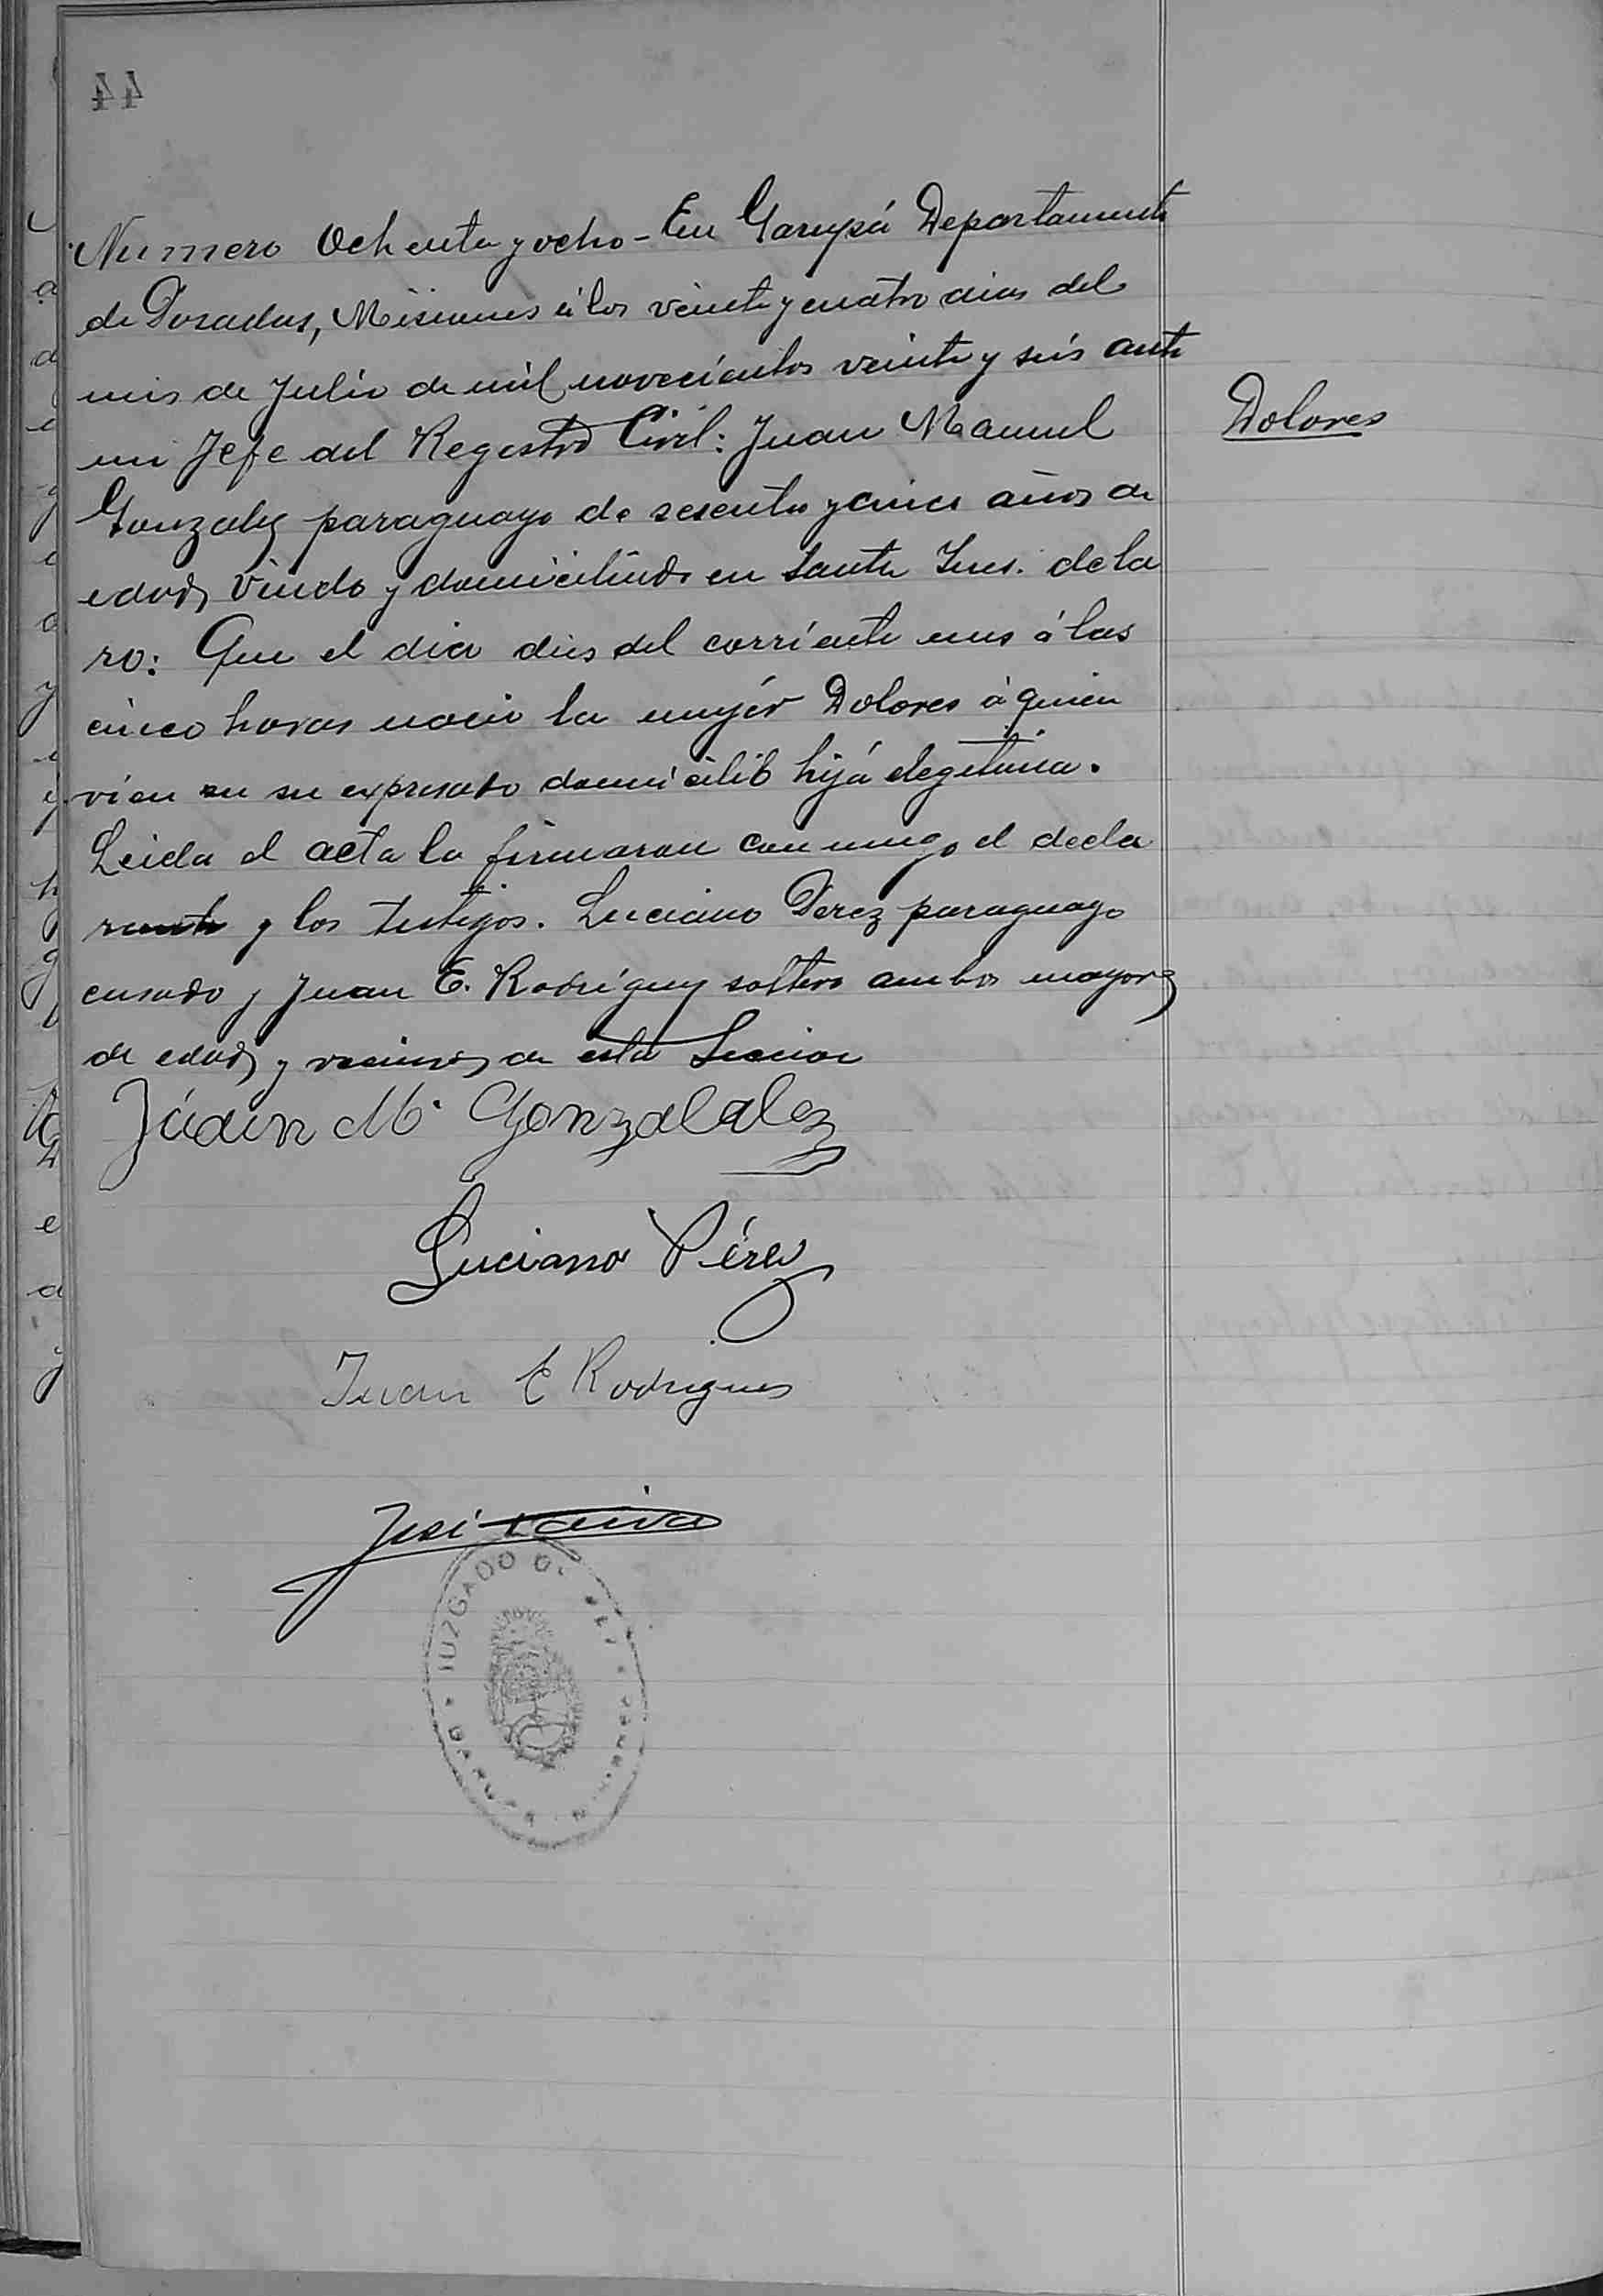 44
Numero Ochenta y ocho - En Garupá Departamento
de Posadas, Misiones á los veinte y cuatro dias del
mes de Julio de mil novecientos veinte y seis ante
mi Jefe del Registro Civil: Juan Manuel
Gonzalez paraguayo de sesenta y cinco años de
edad, viudo y domiciliado en Santa Ines. de la
ro: Que el dia dies del corriente mes á las
cinco horas nacio la mujer Dolores á quien
vi en su expresado domicilio hija
Leida el acta la firmaron con migo el decla
rante y los testigos. Luciano Perez paraguayo
casado y Juan E. Rodriguez soltero ambos mayores
de edad y vecinos de esta Seccion
Dolores
Juan M. Gonzalalez
Luciano Pérez
Juan E Rodrigues
José
JUZGADO D.
GARUPA